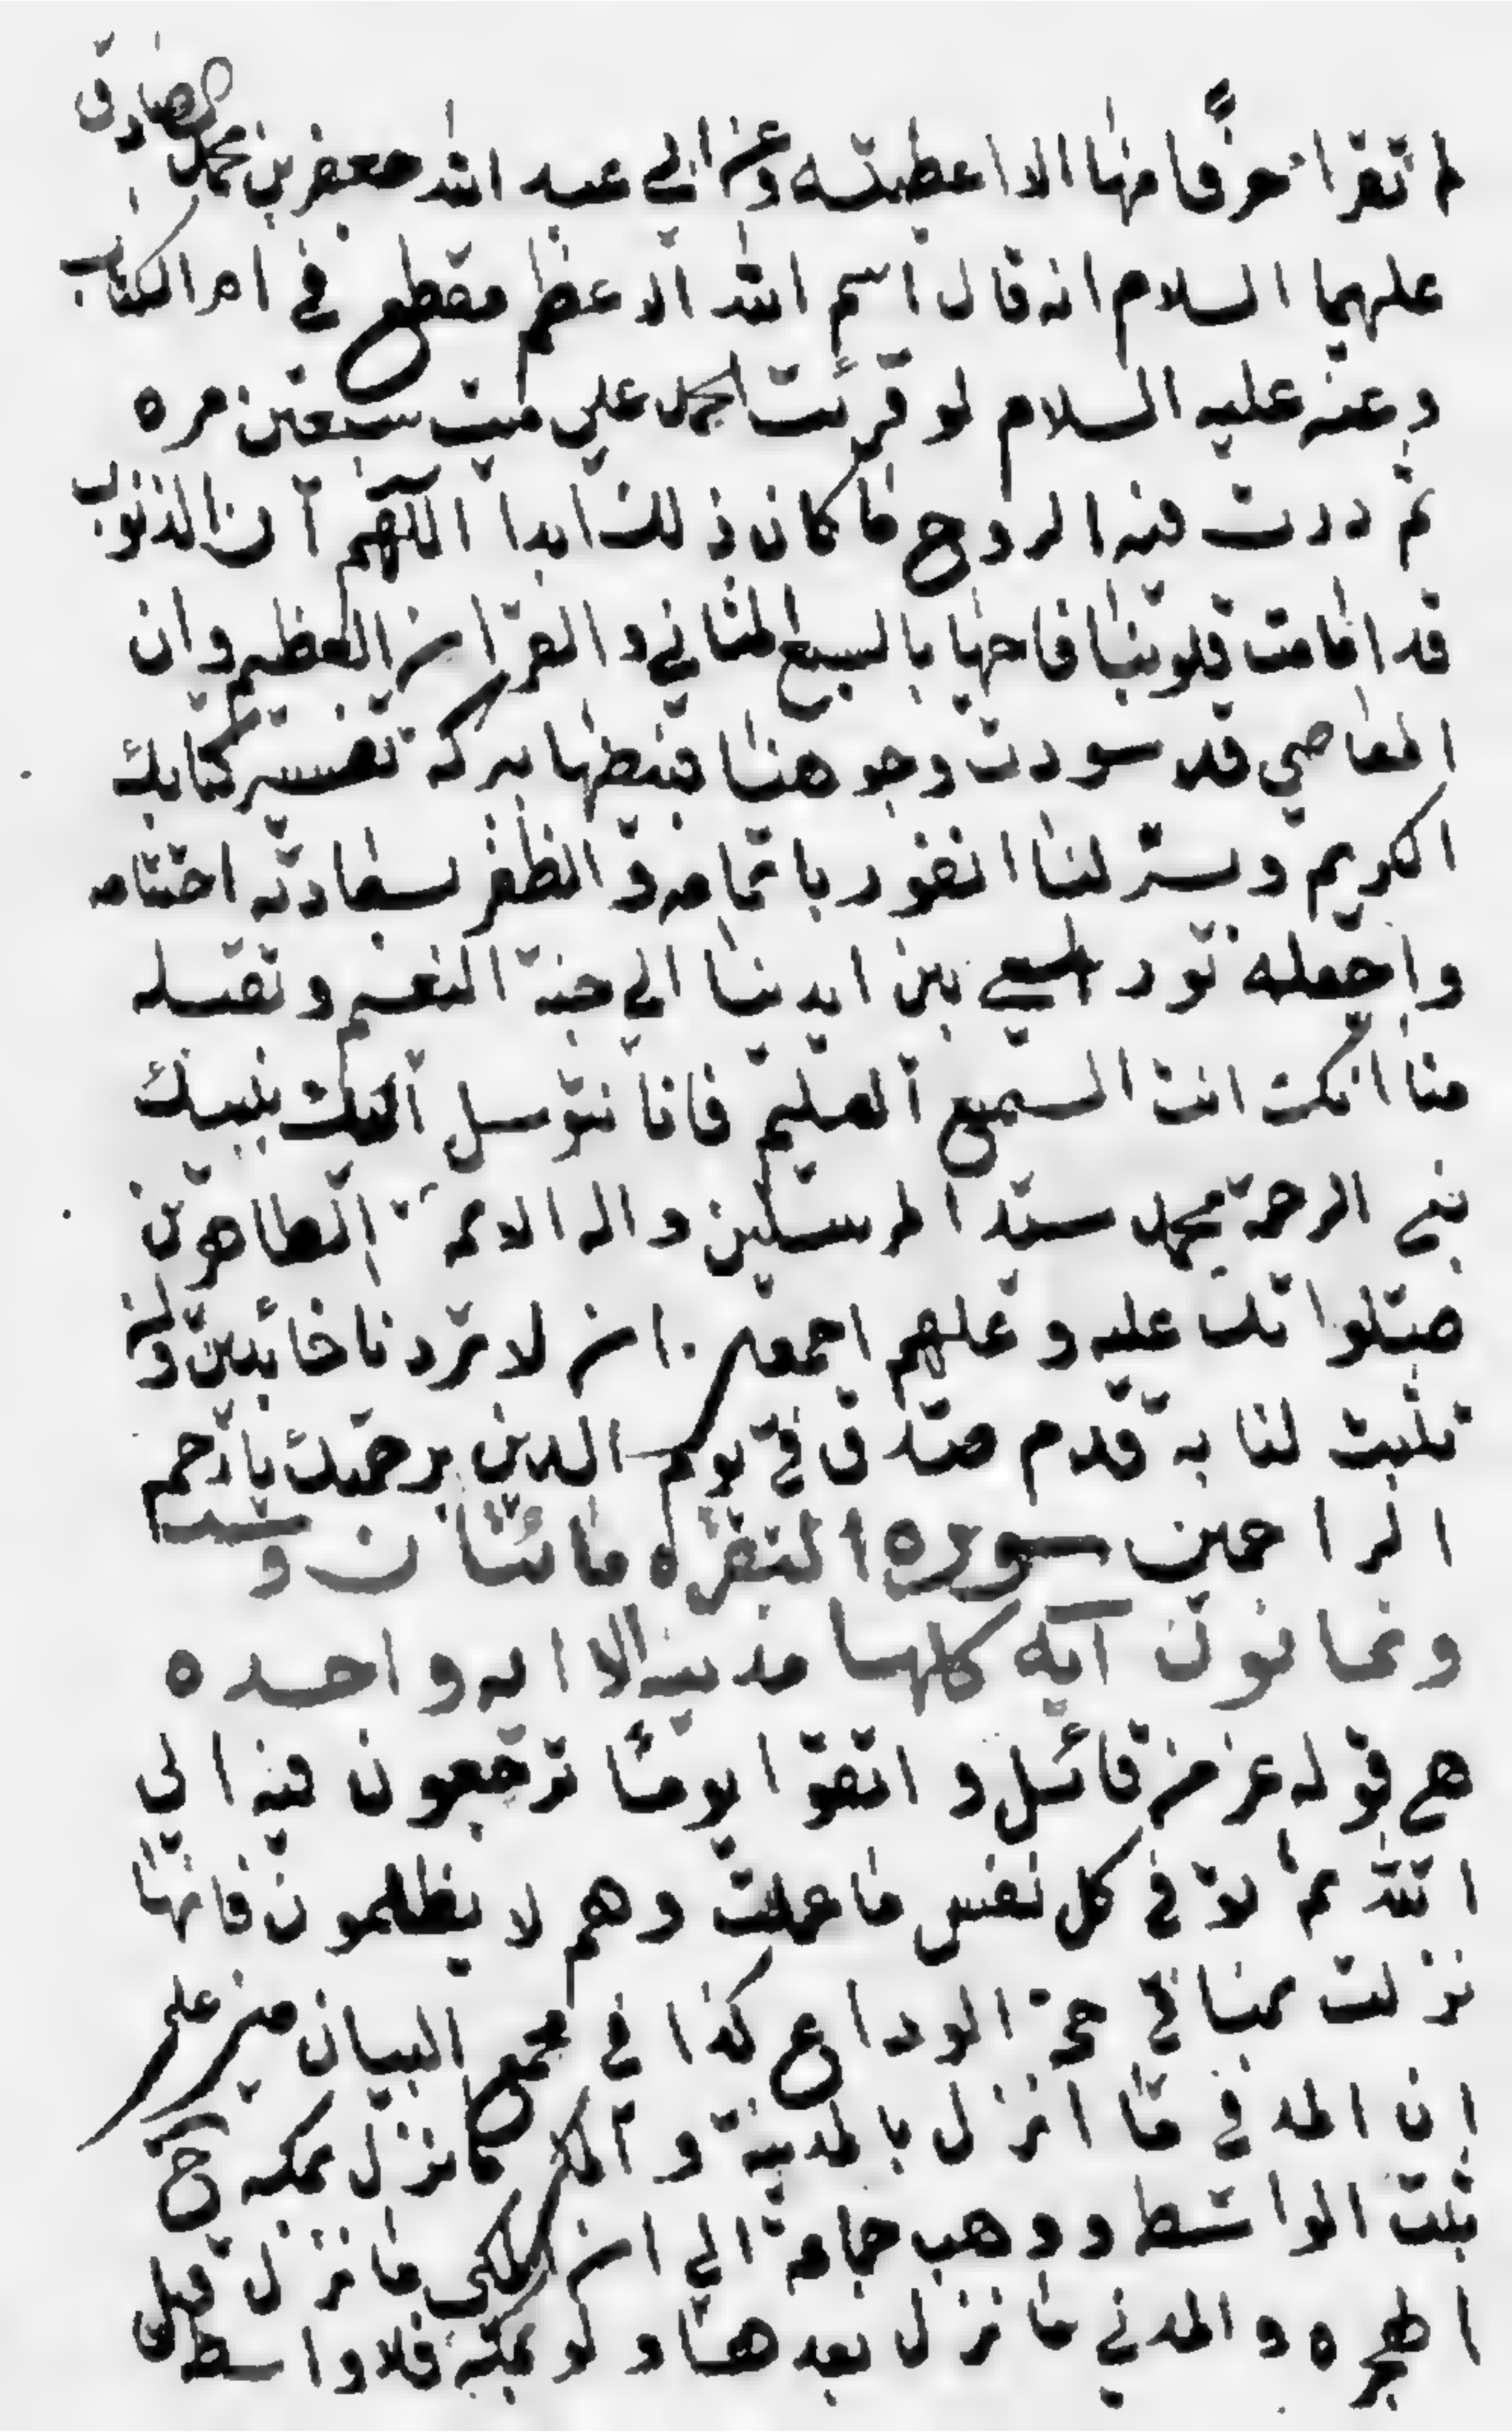 لم تقرا حرفا منها الا اعطيته وعن ابي عبد الله جعفر بن محمد الصادق
عليهما السلام انه قال اسم الله الاعظم مقطع في ام الكتاب
وعنه عليه السلام لو قرئت الحمد علي ميت سبعين مره
ثم ردت فيه الروح ما كان ذلك ابدا اللهم ان الذنوب
قد اماتت قلوبنا فاحيها بالسبع المثاني والقران العظيم وان
المعاصي قد سودت وجوهنا فبيضها ببركه تفسير كتابك
الكريم ويسر لنا الفوز باتمامه والظفر بسعادته اختتامه
واجعله نور يسعي بين ايدينا الي جنة النعيم وتقبله
منا انك انت السميع العليم فانا نتوسل اليك بنبيك
نبي الرحمة محمد سيد المرسلين واله الائمة الطاهرين
صلواتك عليه وعليهم اجمعين ان لا تردنا خائبين وان
تثبت لنا به قدم صدق في يوم الدين برحمتك يا ارحم
الراحمين سوره البقره مائتان وست
وثمانون آية كلها مدنية الا ايه واحده
هي قوله عز من قائل واتقوا يوما ترجعون فيه الي
الله ثم توفي كل نفس ما عملت وهم لا يظلمون فانها
نزلت بمنا في حجة الوداع كذا في مجمع البيان مبني علي
ان المدني ما انزل بالمدينة والمكي ما نزل بمكه ح
ثبت الواسط وذهب جماعة الي ان المكي ما نزل قبل
الهجره والمدني ما نزل بعدها ولو بمكة فلا واسطه